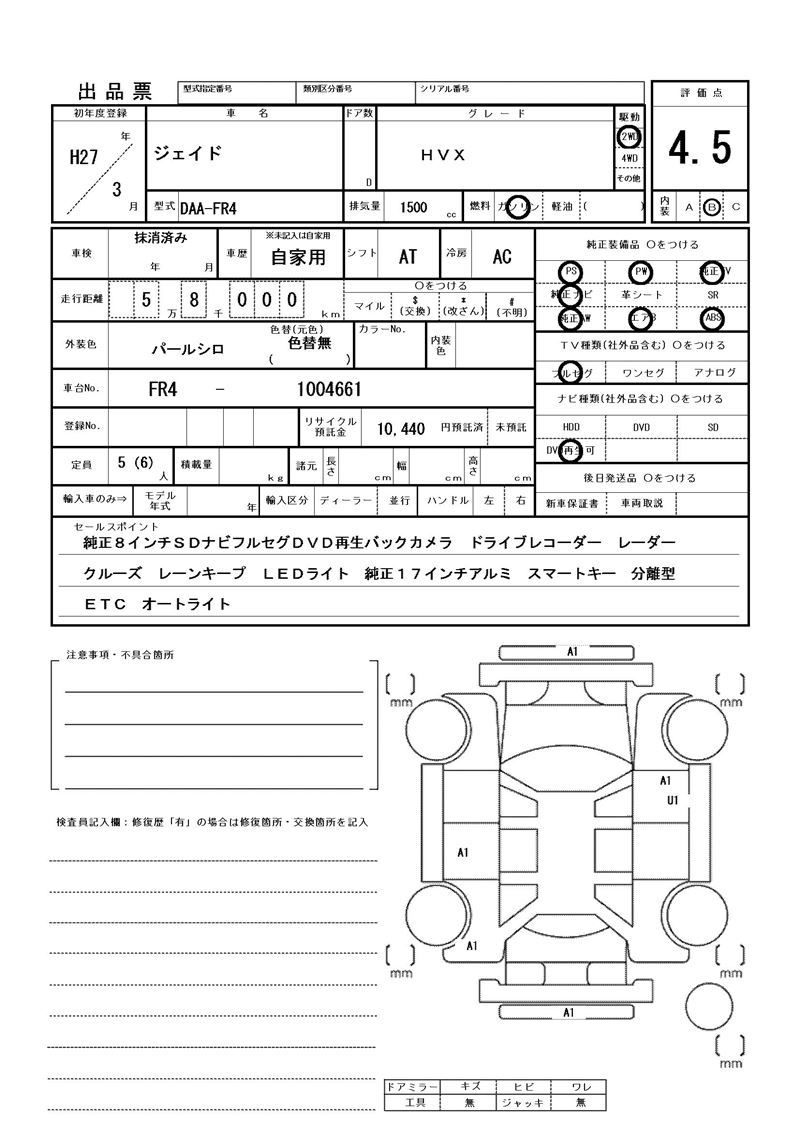 出品票 型式指定番号 類別区分番号 シリアル番号 評価点
初年度登録 車名 ドア数 グレード 駆動
H27 年 ジェイド HVX 2WD 4.5
3 月 D 4WD
その他
型式 DAA-FR4 排気量 1500 cc 燃料 ガソリン 軽油 ( ) 内装 A B C
車検 抹消済み 年 月 車歴 ※未記入は自家用 自家用 シフト AT 冷房 AC 純正装備品 〇をつける
PS PW 純正TV
走行距離 5 万 8 千 0 0 0 km 〇をつける
マイル $ (交換) * (改ざん) # (不明)
純正ナビ 革シート SR
純正AW エアB ABS
外装色 パールシロ 色替(元色) 色替無 ( ) カラーNo. 内装色
TV種類(社外品含む) 〇をつける
フルセグ ワンセグ アナログ
車台No. FR4 - 1004661
ナビ種類(社外品含む) 〇をつける
登録No. リサイクル預託金 10,440 円預託済 未預託
HDD DVD SD
DVD再生可
定員 5 (6) 人 積載量 kg 諸元 長さ cm 幅 cm 高さ cm
後日発送品 〇をつける
輸入車のみ⇒ モデル年式 年 輸入区分 ディーラー 並行 ハンドル 左 右
新車保証書 車両取説
セールスポイント
純正8インチSDナビフルセグDVD再生バックカメラ ドライブレコーダー レーダー
クルーズ レーンキープ LEDライト 純正17インチアルミ スマートキー 分離型
ETC オートライト
注意事項・不具合箇所
A1
mm mm
A1
U1
検査員記入欄:修復歴「有」の場合は修復箇所・交換箇所を記入
A1
A1
mm mm
A1
mm
ドアミラー キズ ヒビ ワレ
工具 無 ジャッキ 無